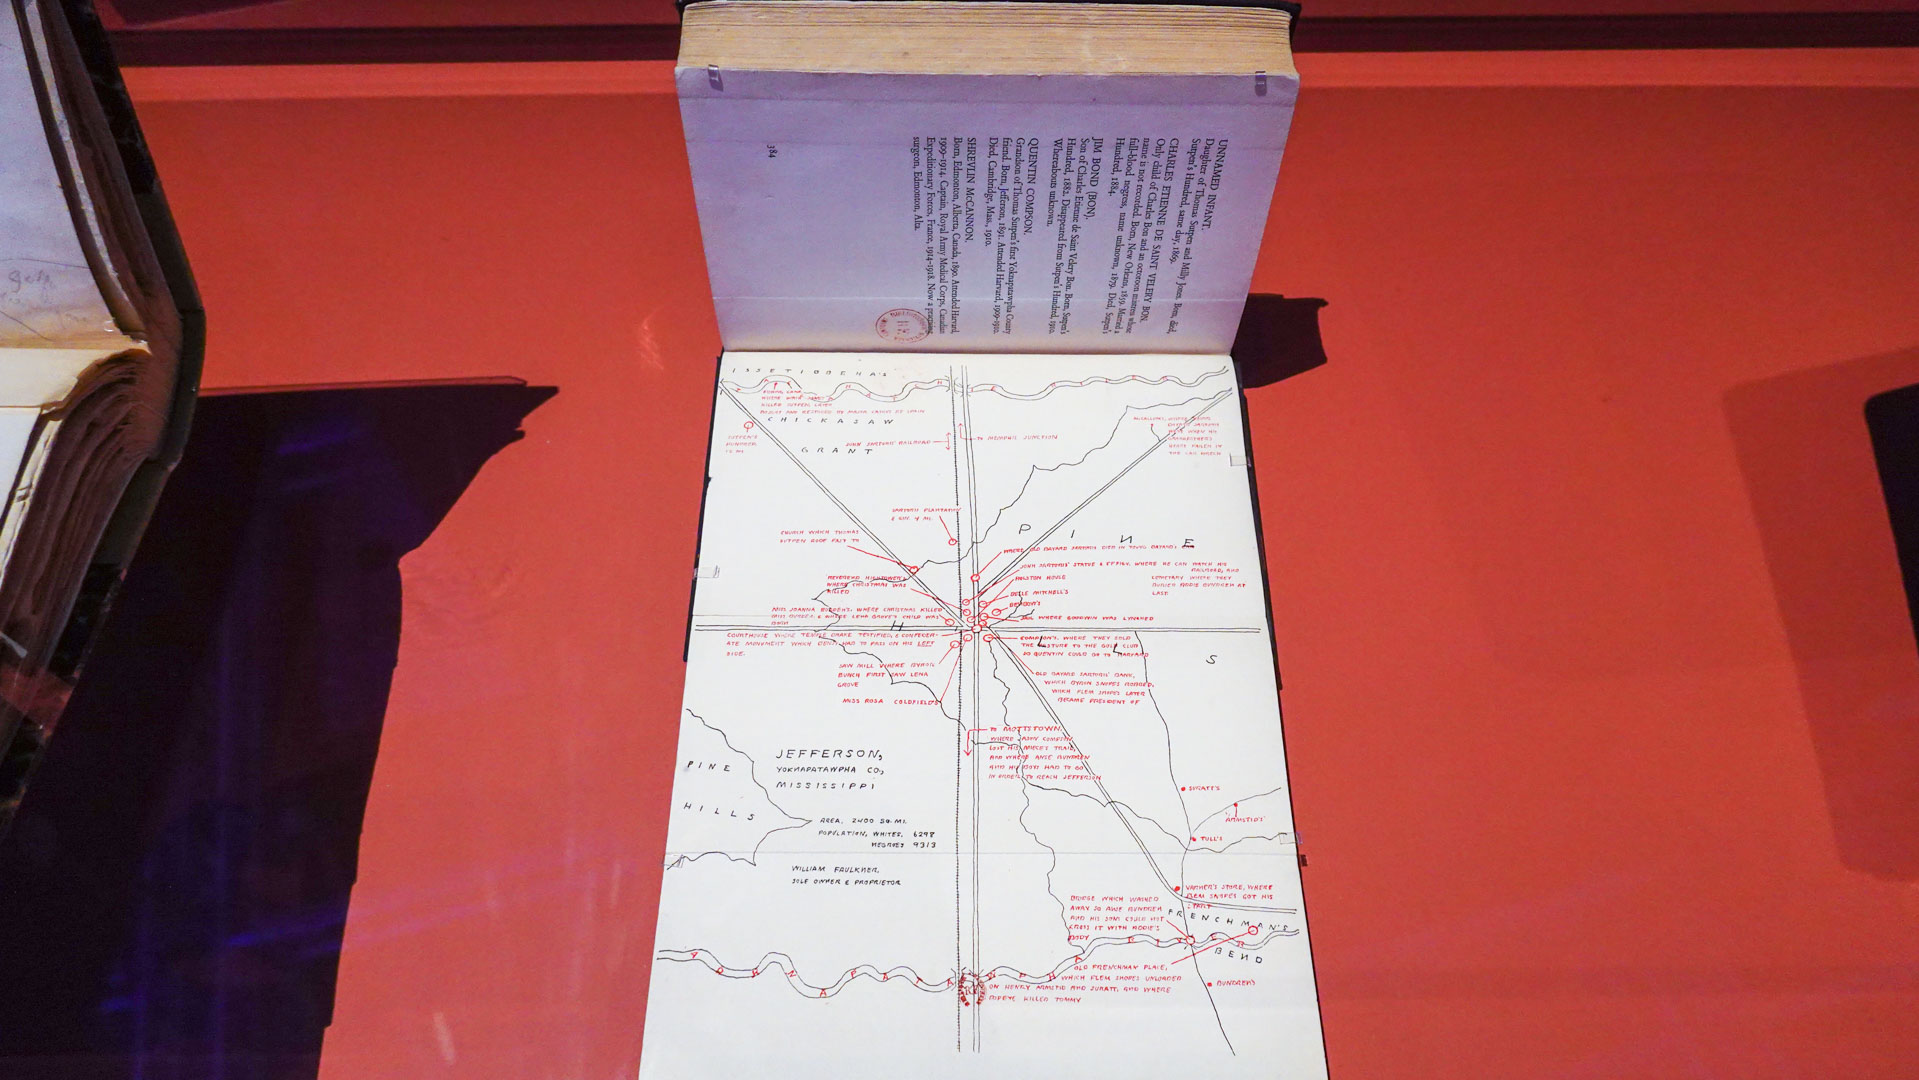 UNNAMED INFANT.
Daughter of Thomas Sutpen and Milly Jones. Born, died,
Sutpen's Hundred, same day, 1869.
CHARLES ETIENNE DE SAINT VELERY BON.
Only child of Charles Bon and an octoroon mistress whose
name is not recorded. Born, New Orleans, 1859. Married a
full-blood negress, name unknown, 1879. Died, Sutpen's
Hundred, 1884.
JIM BOND (BON).
Son of Charles Etienne de Saint Velery Bon. Born, Sutpen's
Hundred, 1882. Disappeared from Sutpen's Hundred, 1910.
Whereabouts unknown.
QUENTIN COMPSON.
Grandson of Thomas Sutpen's first Yoknapatawpha County
friend. Born, Jefferson, 1891. Attended Harvard, 1909-1910.
Died, Cambridge, Mass., 1910.
SHREVLIN McCANNON.
Born, Edmonton, Alberta, Canada, 1890. Attended Harvard,
1909-1914. Captain, Royal Army Medical Corps, Canadian
Expeditionary Forces, France, 1914-1918. Now a practising
surgeon, Edmonton, Alta.
384
ISSETIBBEHA'S
CHICKASAW
GRANT
SUTPEN'S
HUNDRED
12 MI.
JOHN SARTORIS' RAILROAD
TO MEMPHIS JUNCTION
SARTORIS PLANTATION
& GIN. 4 MI.
CHURCH WHICH THOMAS
SUTPEN RODE FAST TO
PINE
HILLS
WHERE OLD BAYARD SARTORIS DIED IN YOUNG BAYARD'S CAR
JOHN SARTORIS' STATUE & EFFIGY, WHERE HE CAN WATCH HIS
RAILROAD, AND
CEMETARY WHERE THEY
BURIED ADDIE BUNDREN AT
LAST.
HOLSTON HOUSE
BELLE MITCHELL'S
BENBOW'S
JAIL WHERE GOODWIN WAS LYNCHED
REVEREND HIGHTOWER'S
WHERE CHRISTMAS WAS
KILLED
MISS JOANNA BURDEN'S, WHERE CHRISTMAS KILLED
MISS BURDEN, & WHERE LENA GROVE'S CHILD WAS
BORN
COURTHOUSE WHERE TEMPLE DRAKE TESTIFIED, & CONFEDER-
ATE MONUMENT WHICH BENJY HAD TO PASS ON HIS LEFT
SIDE.
SAW MILL WHERE BYRON
BUNCH FIRST SAW LENA
GROVE
MISS ROSA COLDFIELD'S
COMPSON'S, WHERE THEY SOLD
THE PASTURE TO THE GOLF CLUB
SO QUENTIN COULD GO TO HARVARD
OLD BAYARD SARTORIS' BANK,
WHICH BYRON SNOPES ROBBED,
WHICH FLEM SNOPES LATER
BECAME PRESIDENT OF
TO MOTTSTOWN,
WHERE JASON COMPSON
LOST HIS NIECE'S TRAIL,
AND WHERE ANSE BUNDREN
AND HIS BOYS HAD TO GO
IN ORDER TO REACH JEFFERSON
PINE
HILLS
JEFFERSON,
YOKNAPATAWPHA CO.,
MISSISSIPPI
AREA, 2400 SQ. MI.
POPULATION, WHITES, 6298
NEGROES 9313
WILLIAM FAULKNER,
SOLE OWNER & PROPRIETOR
SURATT'S
ARMSTID'S
TULL'S
VARNER'S STORE, WHERE
FLEM SNOPES GOT HIS
START
FRENCHMAN'S
BEND
BRIDGE WHICH WASHED
AWAY SO ANSE BUNDREN
AND HIS SONS COULD NOT
CROSS IT WITH ADDIE'S
BODY
OLD FRENCHMAN PLACE,
WHICH FLEM SNOPES UNLOADED
ON HENRY ARMSTID AND SURATT, AND WHERE
POPEYE KILLED TOMMY
BUNDREN'S
YOKNAPATAWPHA RIVER